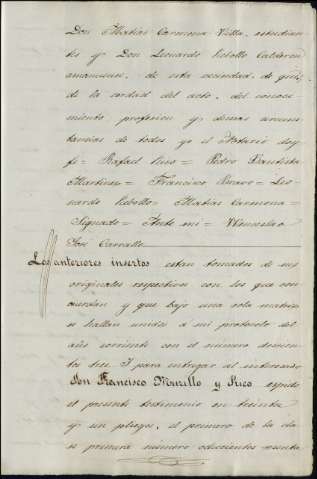 Don Matías Carmona Villa, estudian
te y Don Leonardo Rebollo Calderon
amanuense, de esta vecindad, de quie
de la verdad del acto, del conoci
miento profesion y demas circuns
tancias de todos yo el Notario doy
fe = Rafael = Pedro Bautista
Martinez = Francisco = Leo
nardo Rebollo = Matías Carmona =
Signado = Ante mi = Wenceslao
José Carvallo
Los anteriores insertos estan tomados de sus
originales respectivos con los que con
cuerdan y que bajo una sola matriz
se hallan unidos a mi protocolo del
año corriente con el numero
tres. Y para entregar al interesado
Don Francisco Murillo y Rico espido
el presente testimonio en treinta
y un pliegos, el primero de la cla
se primera número ochocientos